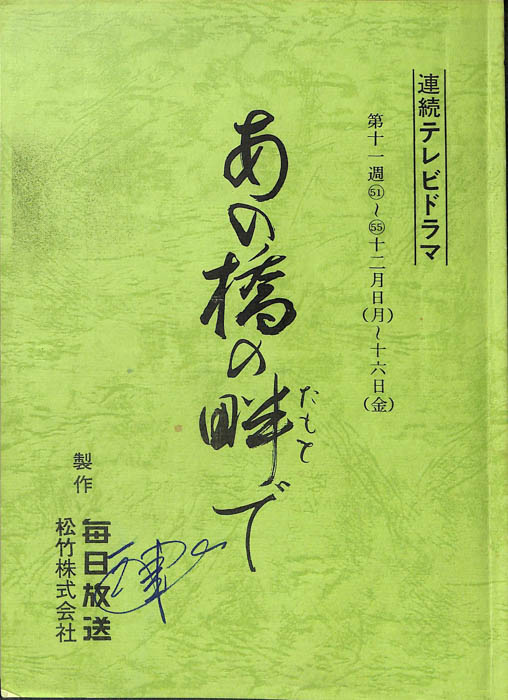 連続テレビドラマ
第十一週㊿〜55十二月日(月)〜十六日(金)
あの橋の畔で
たもと
製作
毎日放送
松竹株式会社